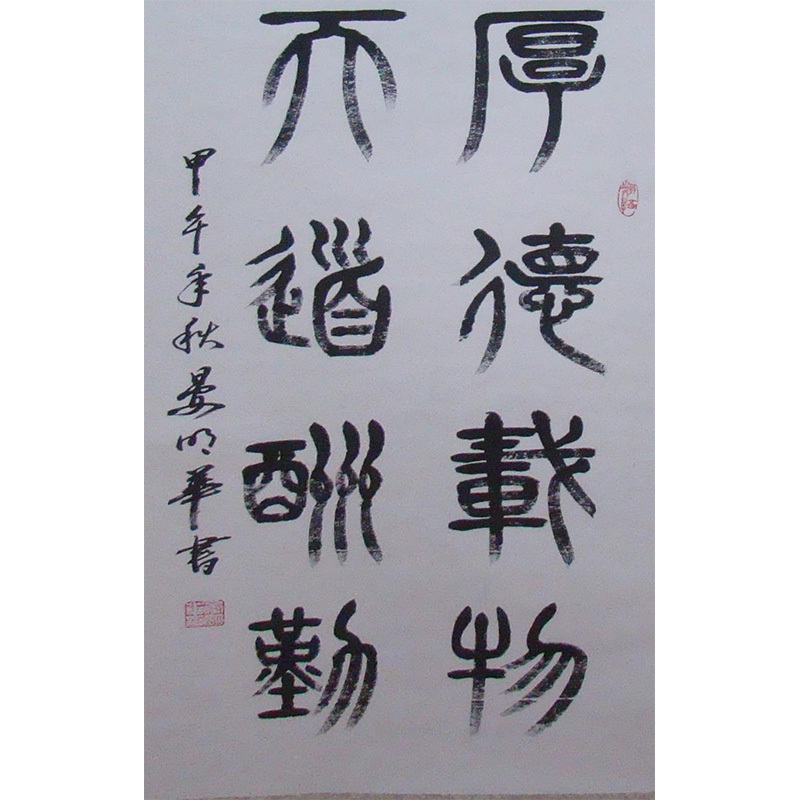 厚德載物
天道酬勤
甲午年秋晏明華書